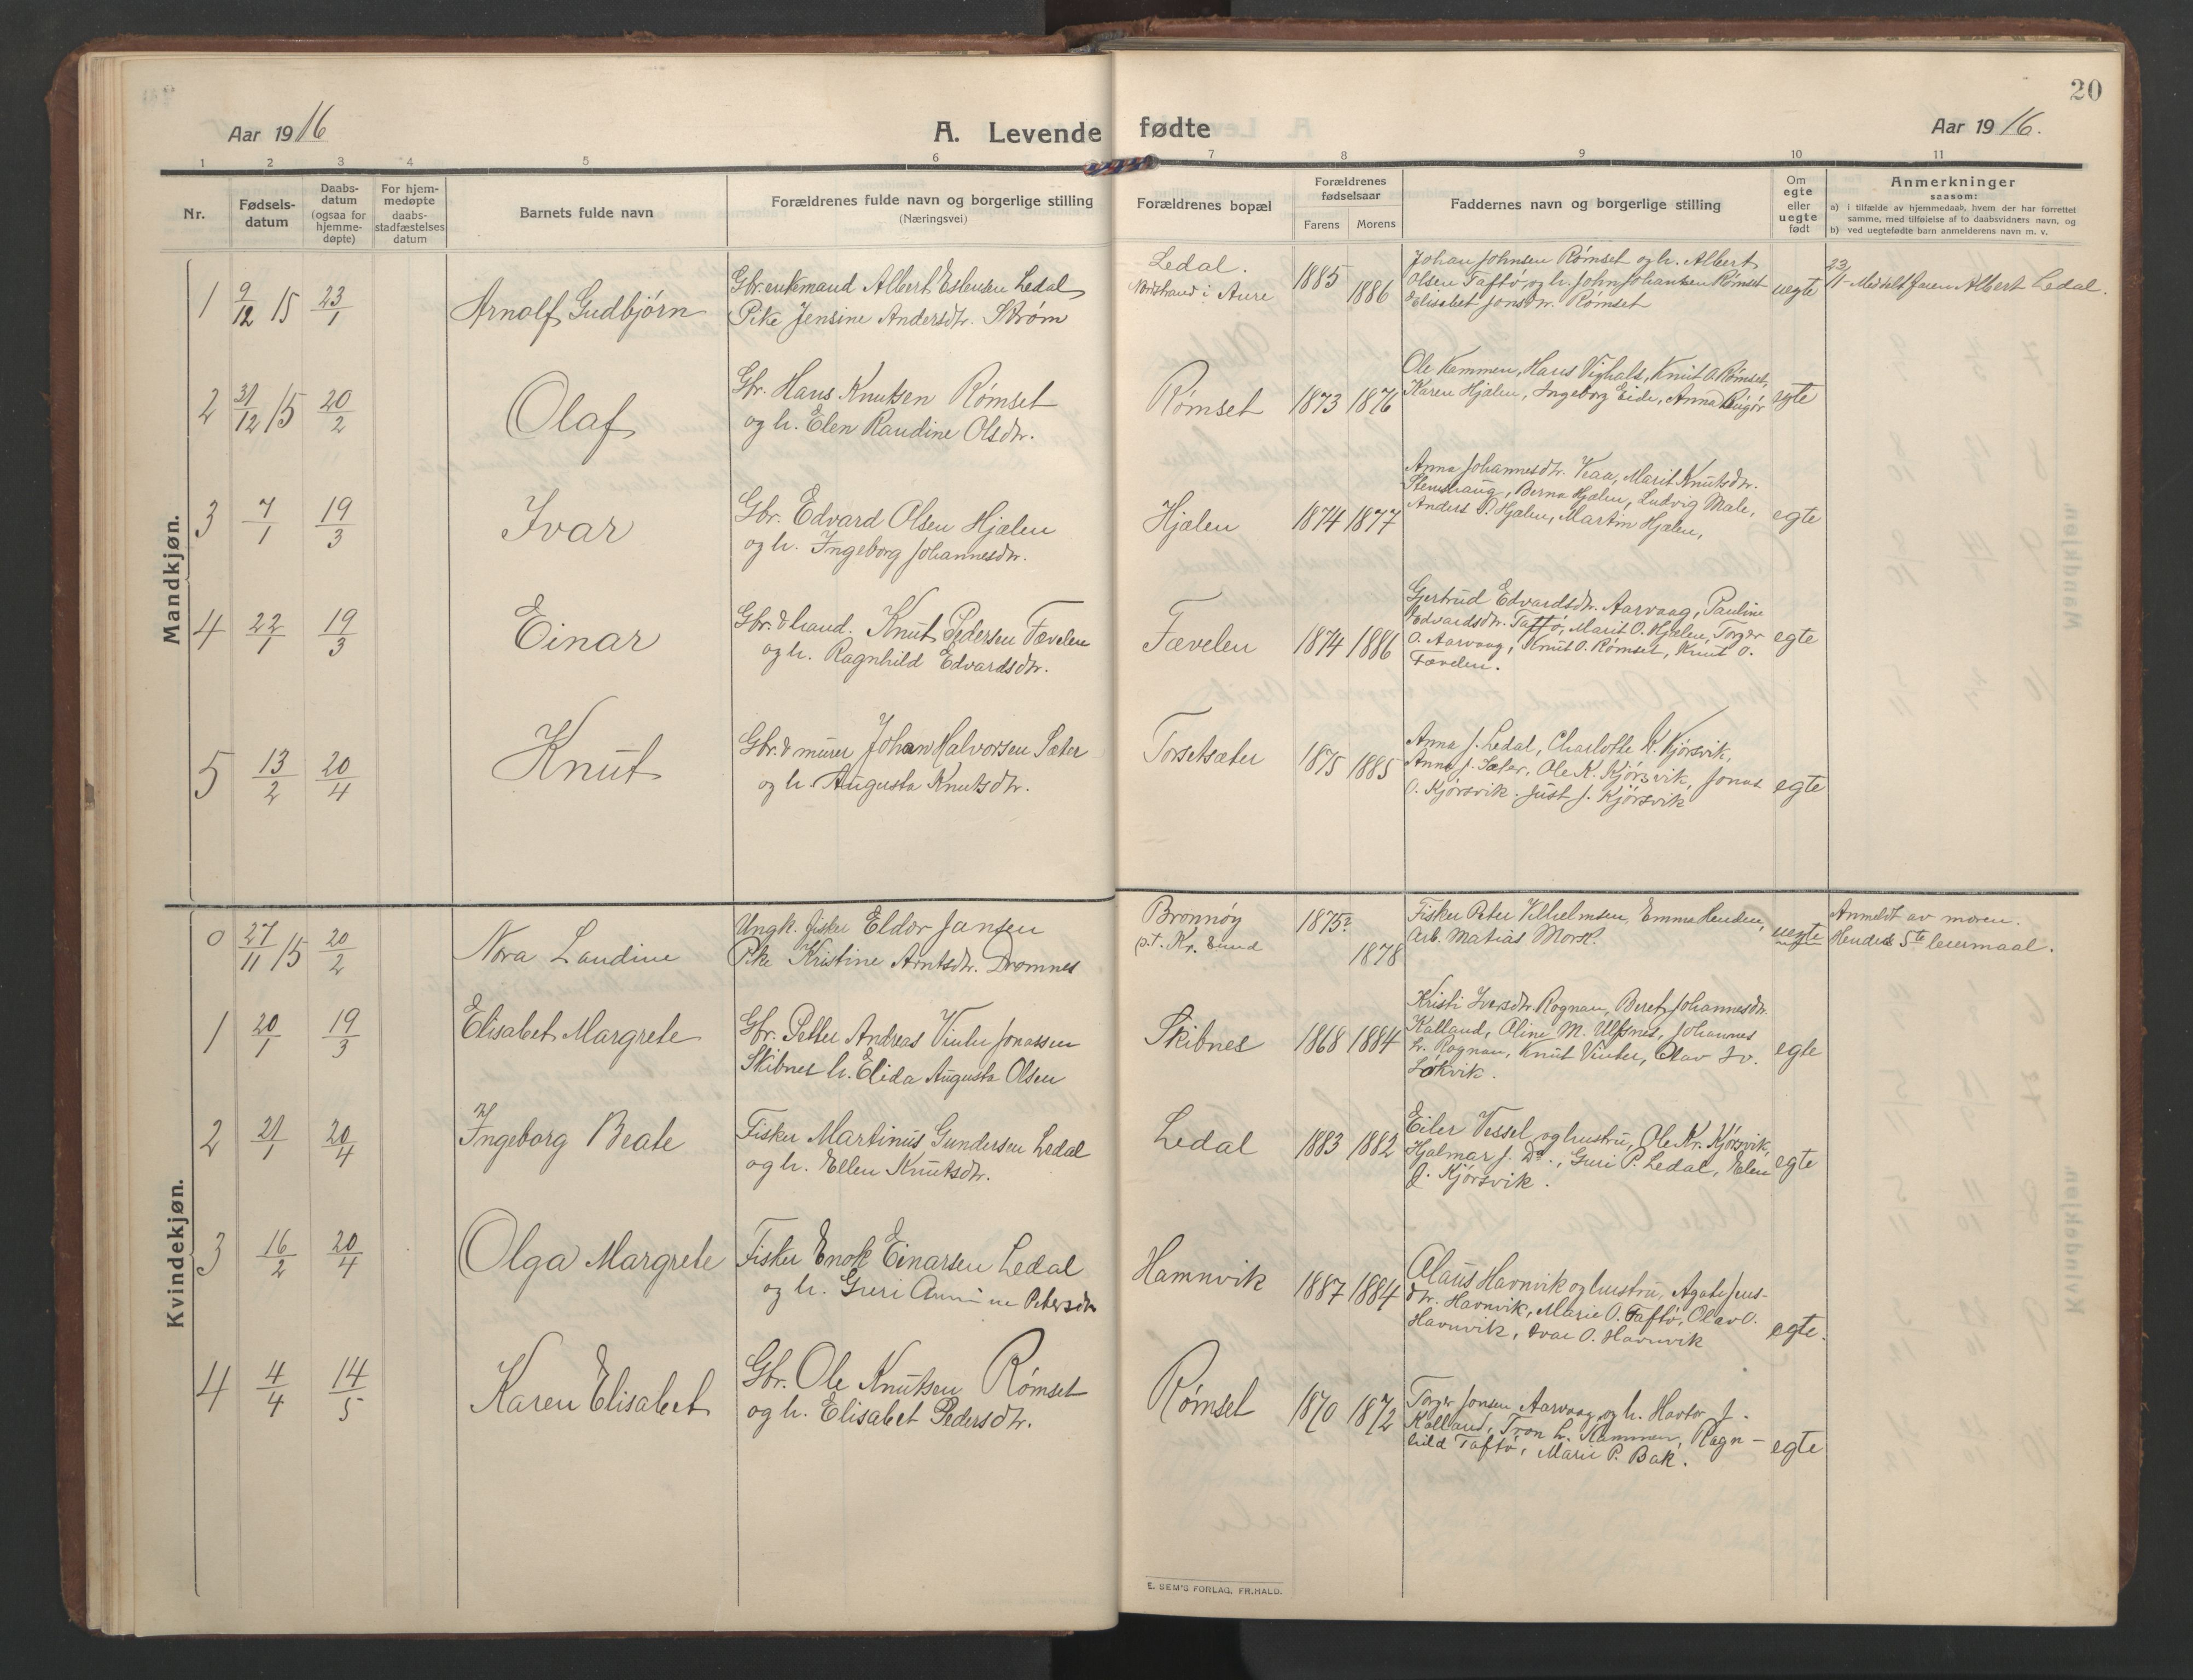 20
Aar 1916
A. Levende fødte
Aar 1916.
1 2 3 4 5 6 7 8 9 10 11
Nr.
Fødsels-
datum
Daabs-
datum
(ogsaa for
hjemme-
døpte)
For hjem-
medøpte
daabs-
stadfæstelses
datum
Barnets fulde navn
Forældrenes fulde navn og borgerlige stilling
(Næringsvei)
Forældrenes bopæl
Forældrenes
fødselsaar
Farens Morens
Faddernes navn og borgerlige stilling
Om
egte
eller
uegte
født
Anmerkninger
saasom:
a) i tilfælde av hjemmedaab, hvem der har forrettet
samme, med tilføielse af to daabsvidners navn, og
b) ved uegtefødte barn anmelderens navn m. v.
Mandkjøn.
1 9/12 15 23/1
Arnolf Gudbjørn
Gbr. enkemand Albert Estensen Ledal
Pike Jensine Andersdtr. Strøm
Ledal.
Nordstrand i Aure
1885
1886
Johan Johnsen Rømset og h. Albert
Olsen Taftø, og h. John Johansen Rømset
Elisabet Jonsdtr. Rømset
uegte
23/1 - Meddelt faren Albert Ledal.
2 31/12 15 20/2
Olaf
Gbr. Hans Knutsen Rømset
og h. Elen Randine Olsdtr.
Rømset
1873 1876
Ole Kammen, Hans Vighals, Knut O. Rømset,
Karen Hjælen, Ingeborg Eide, Anna
egte
3 7/1 19/3
Ivar
Gbr. Edvard Olsen Hjælen
og h. Ingeborg Johannesdtr.
Hjælen
1874 1877
Anna Johannesdtr. Veaa, Marit Knutsdtr.
Stenshaug, Berna Hjælen, Ludvig Male,
Anders P. Hjælen, Martin Hjælen,
egte
4 22/1 19/3
Einar
Gbr. & hand. Knut Pedersen Fævelen
og h. Ragnhild Edvardsdtr.
Fævelen
1874 1886
Gjertrud Edvardsdtr. Aarvaag, Pauline
Edvardsdtr. Taftø, Marit O. Hjælen, Torger
O. Aarvaag, Knut O. Rømset, Knut O.
Fævelen.
egte
5 13/2 20/4
Knut
Gbr. & murer Johan Halvorsen Sæter
og h. Augusta Knutsdtr.
Torsetsæter
1875 1885
Anna J. Ledal, Charlotte K. Kjørsvik,
Anna J. Sæter, Ole K. Kjørsvik, Jonas
O. Kjørsvik. Just J. Kjørsvik
egte
Kvindekjøn.
0 27/11 15 20/2
Nora Landine
Ungk. fisker Eldor Jansen
Pike Kristine Arntsdtr. Dromnes
Brønnøy
p.t. Kr. sund
1875?
1878
Fisker Peter Vilhelmsen, Emma Henden,
Arb. Matias Morsk.
uegte
Anmeldt av moren.
Hendes 5te leiermaal.
1 20/1 19/3
Elisabet Margrete
Gbr. Petter Andreas Vinter Jonassen
Skibnes h. Elida Augusta Olsen
Skibnes
1868 1884
Kristi Iversdtr. Rognan, Beret Johannesdtr.
Kalland, Aline M. Ulfsnes, Johannes
L. Rognan, Knut Vinter, Olav Iv.
Løkvik.
egte
2 21/1 20/4
Ingeborg Beate
Fisker Martinus Gundersen Ledal
og h. Ellen Knutsdtr.
Ledal
1883 1882
Eiler Vessel og hustru, Ole Kr. Kjørsvik,
Hjalmar J. Do., Guri P. Ledal, Elen
J. Kjørsvik.
egte
3 16/2 20/4
Olga Margrete
Fisker Enok Einarsen Ledal
og h. Guri Petersdtr
Hamnvik
1887 1884
Olaus Havnvik og hustru, Agate Jens-
dtr. Havnvik, Marie O. Taftø, Olav O.
Havnvik, Ivar O. Havnvik
egte.
4 4/4 14/5
Karen Elisabet
Gbr. Ole Knutsen Rømset
og h. Elisabet Pedersdtr.
Rømset
1870 1872
Torger Jonsen Aarvaag og h. Havtor J.
Kalland, Tron L. Kammen, Ragn-
hild Taftø, Marie P. Bak.
egte
E. SEM'S FORLAG, FR.HALD.